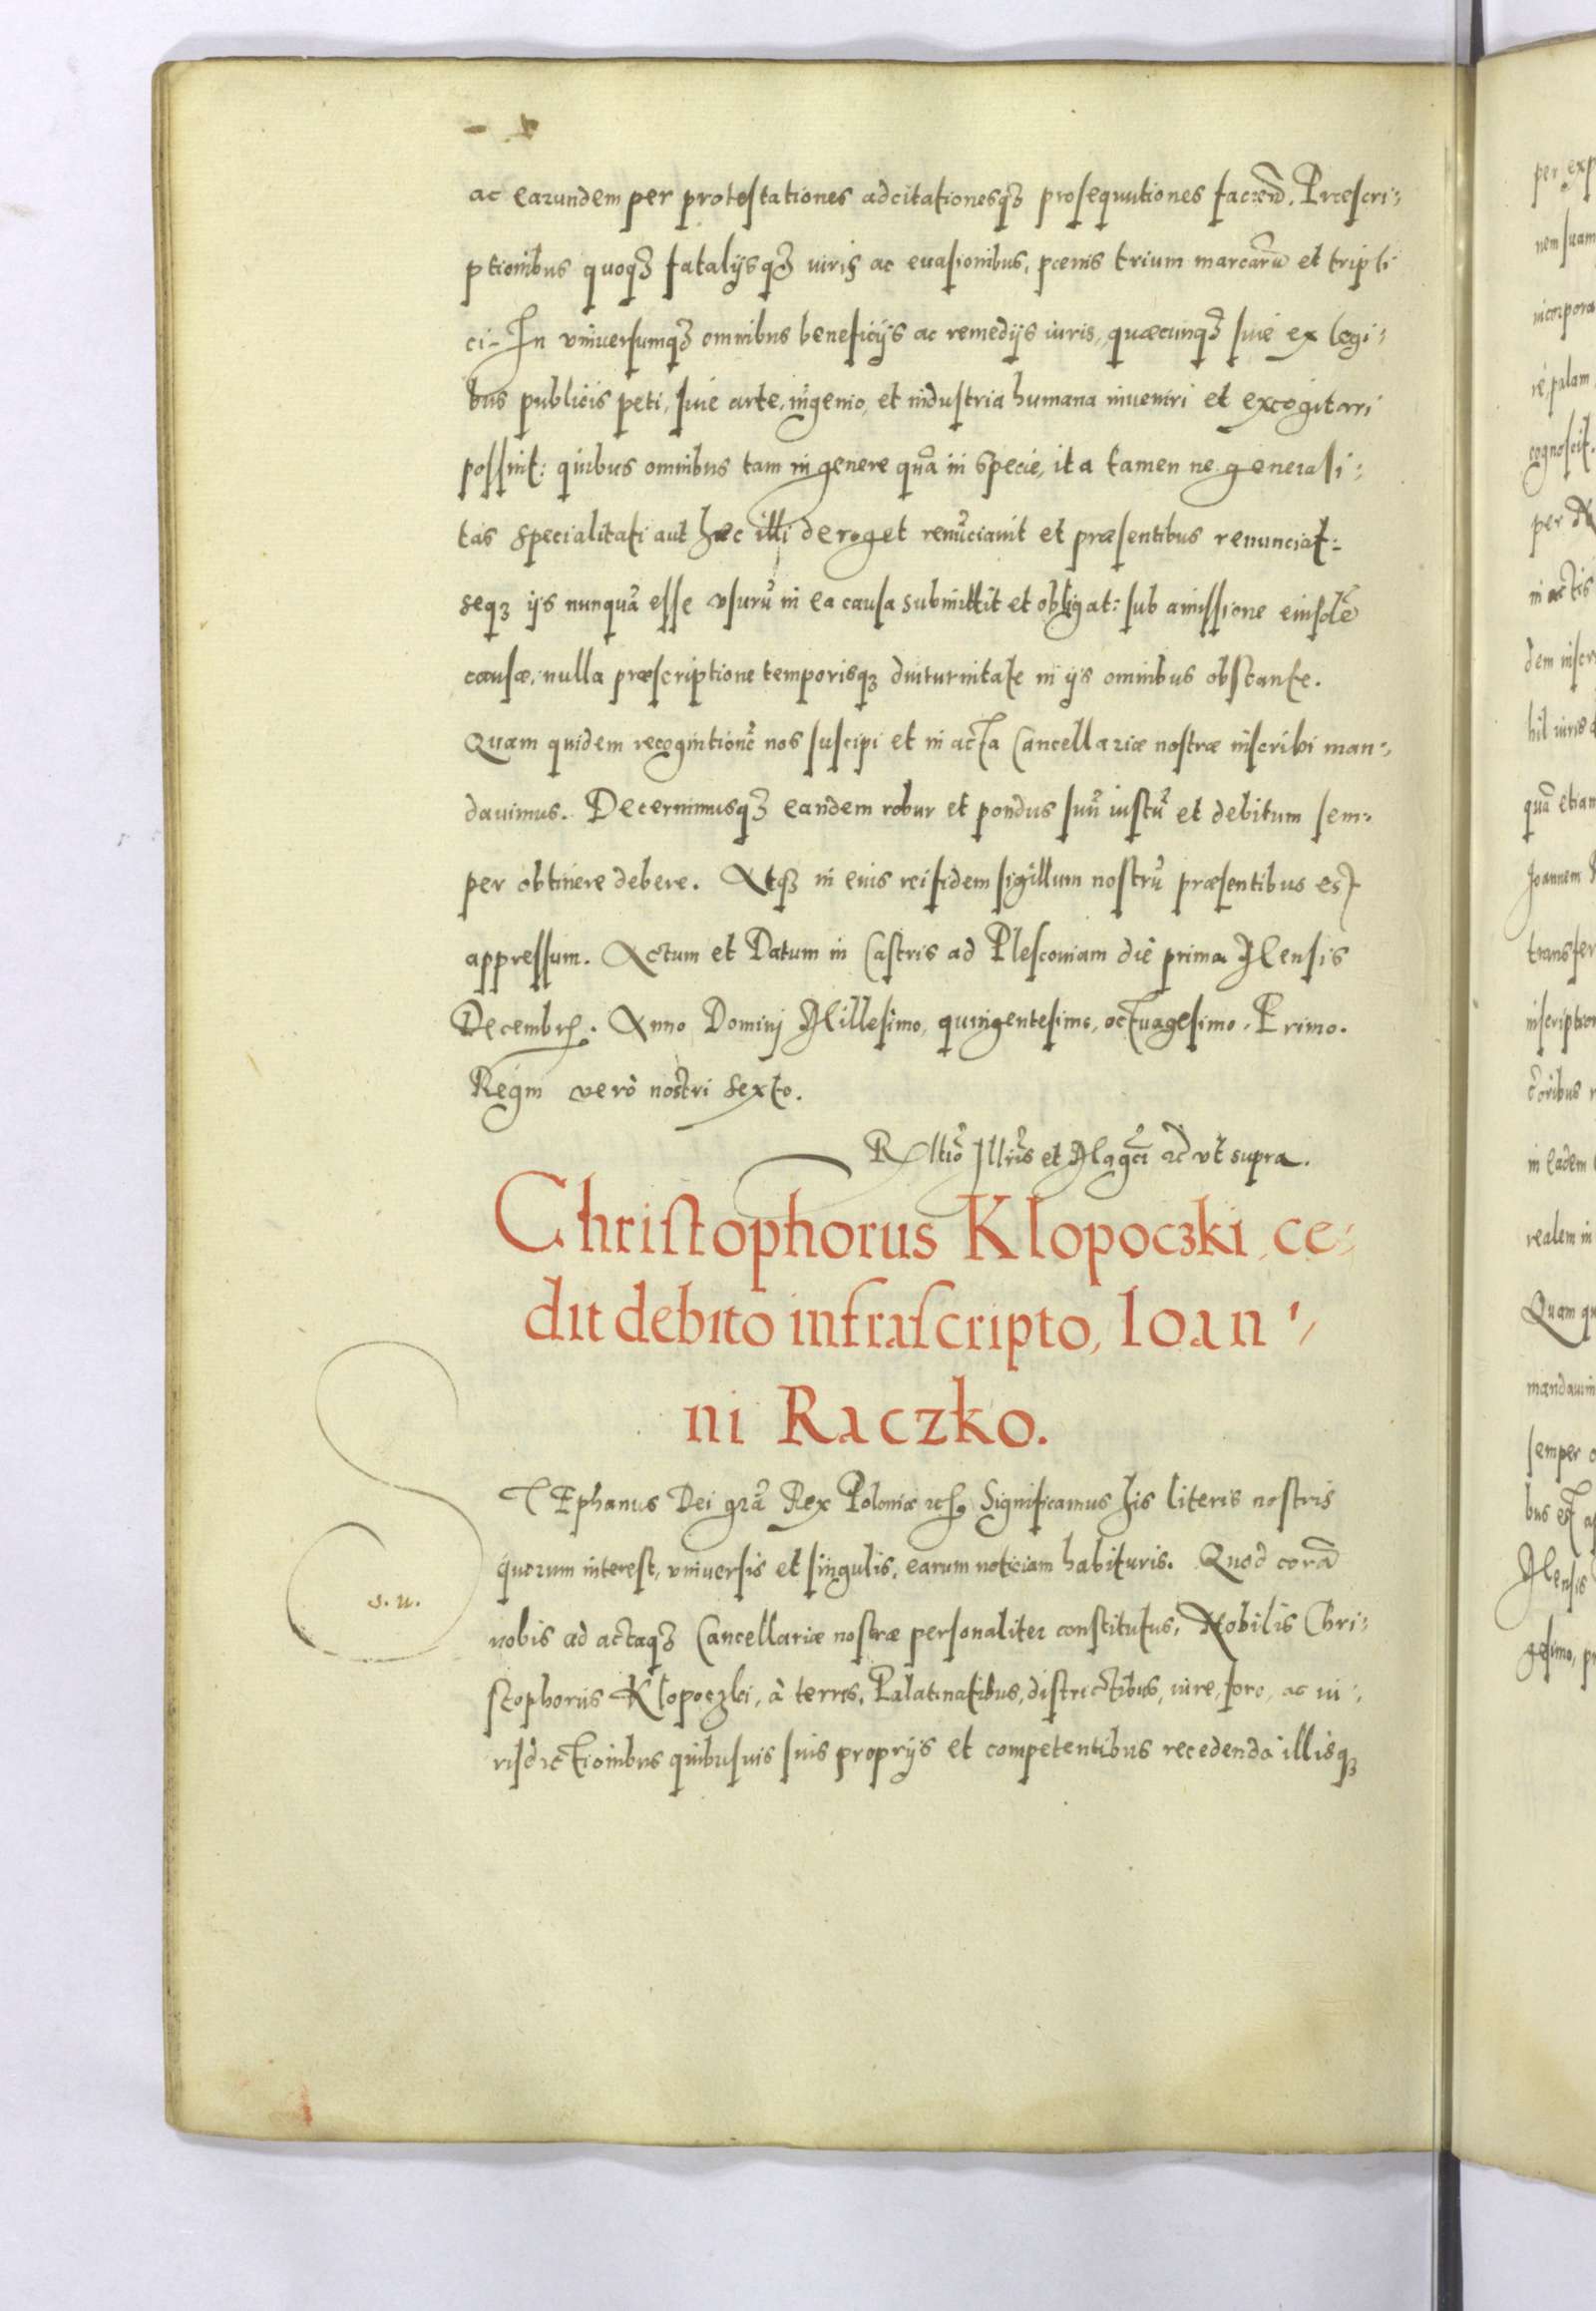 ac earundem per protestationes adcitationesqꝫ prosequutiones faciend̃. Præscri-
ptionibus quoqꝫ fatalijsqꝫ iuris ac euasionibus, pœnis trium marcarũ et tripli
ci. In vniuersumqꝫ omnibus beneficijs ac remedijs iuris, quæcunqꝫ siue ex legi-
bus publicis peti, siue arte, ingenio, et industria humana inueniri et excogitari
possint: quibus omnibus tam in genere quã in specie, ita tamen ne generali-
tas specialitati aut hæc illi deroget renũciauit et præsentibus renunciat:
seqꝫ ijs nunquã esse vsurũ in ea causa submittit et obligat: sub amissione eiusdẽ
causæ, nulla præscriptione temporisqꝫ diuturnitate in ijs omnibus obstante.
Quam quidem recognitionẽ nos suscipi et in acta Cancellariæ nostræ inscribi man-
dauimus. Decernimusqꝫ eandem robur et pondus suũ iustũ et debitum sem-
per obtinere debere. Atqꝫ in eius rei fidem sigillum nostrũ præsentibus est
appressum. Actum et Datum in Castris ad Plesconiam die prima Mensis
Decembr̃. Anno Domini Millesimo, quingentesimo, octuagesimo, Primo.
Regni vero nostri sexto.
Rltiõ Illrĩs et Mag̃ci ꝛc̃ vt supra.
Christophorus Klopoczki, ce-
dit debito infrascripto, Ioan-
ni Raczko.
STEphanus Dei grã Rex Poloniæ ꝛc̃. Significamus his literis nostris
quorum interest, vniuersis et singulis, earum noticiam habituris. Quod corã
s. u.
nobis ad actaqꝫ Cancellariæ nostræ personaliter constitutus, Nobilis Chri-
stophorus Klopoczki, à terris, Palatinatibus, districtibus, iure, foro, ac iu-
risdictionibus quibusuis suis proprijs et competentibus recedendo illisqꝫ